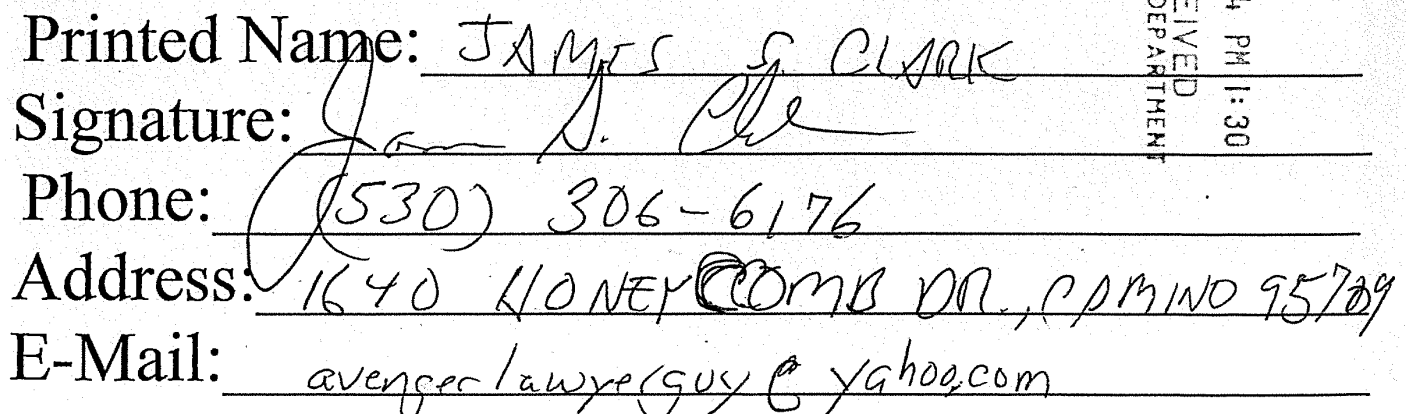 Printed Name: JAMES S. CLARK
Signature:
Phone: (530) 306-6176
Address: 1640 HONEYCOMB DR., CAMINO 95709
E-Mail: avengerlawyerguy@yahoo.com
4 PM 1:30
EIVED
DEPARTMENT